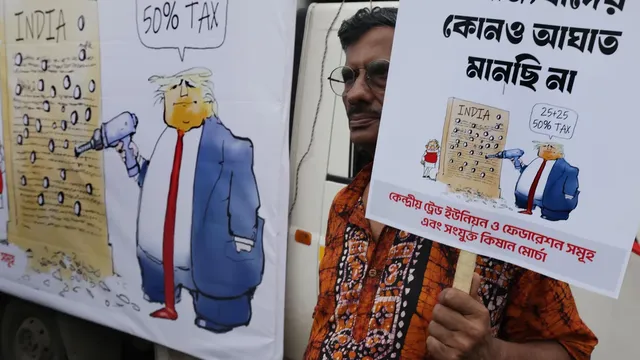 INDIA
50% TAX
সমূহ
কোনও আঘাত
মানছি না
INDIA
25+25
50% TAX
কেন্দ্রীয় ট্রেড ইউনিয়ন ও ফেডারেশন সমূহ
এবং সংযুক্ত কিষান মোর্চা